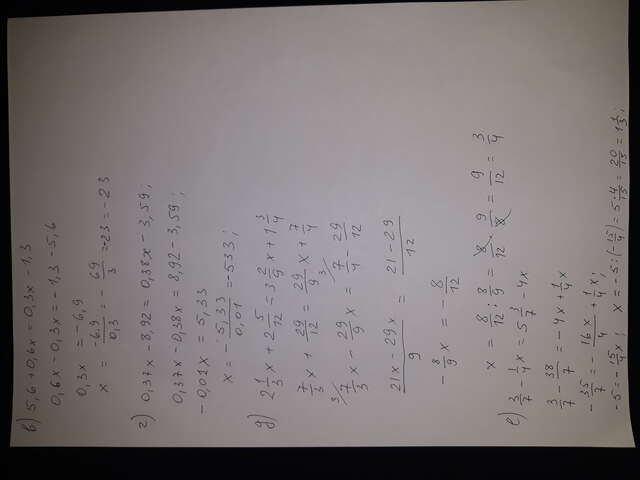 в) 5,6 + 0,6x = 0,3x - 1,3
0,6x - 0,3x = -1,3 - 5,6
0,3x = -6,9
x = -6.9/0,3 = - 69/3 = -23 = -23
г) 0,37x - 8,92 = 0,38x - 3,59;
0,37x - 0,38x = 8,92 - 3,59;
-0,01x = 5,33
x = - 5,33/0,01 = -533;
д) 2 1/3 x + 2 5/12 = 3 2/9 x + 1 3/4
7/3 x + 29/12 = 29/9 x + 7/4
3/ 7/3 x - 29/9 x = 3/ 7/4 - 29/12
21x - 29x/9 = 21 - 29/12
- 8/9 x = - 8/12
x = 8/12 : 8/9 = 8/12 · 9/8 = 9/12 = 3/4
е) 3/7 - 1/4 x = 5 3/7 - 4x
3/7 - 38/7 = -4x + 1/4 x
- 35/7 = - 16x/4 + 1/4 x;
-5 = - 15/4 x; x = -5 : (- 15/4) = 5·4/15 = 20/15 = 1 1/3;